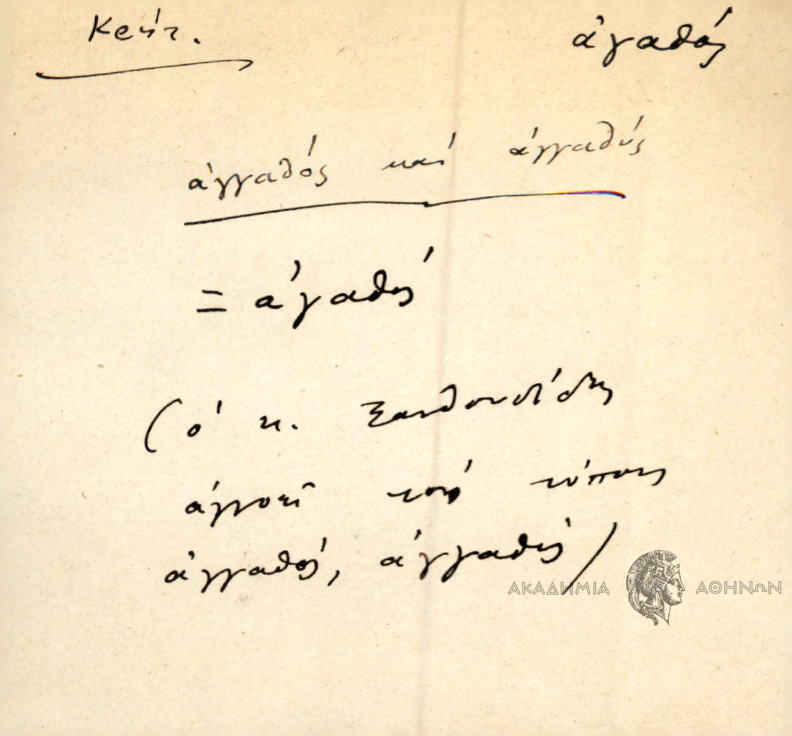 Κρήτ.
ἀγαθός
ἀγγαθός καί ἀγγαθύς
= ἀγαθός
(ὁ κ. Ξανθουδίδης
ἀγνοεῖ τούς τύπους
ἀγγαθός, ἀγγαθύς)
ΑΚΑΔΗΜΙΑ ΑΘΗΝΩΝ